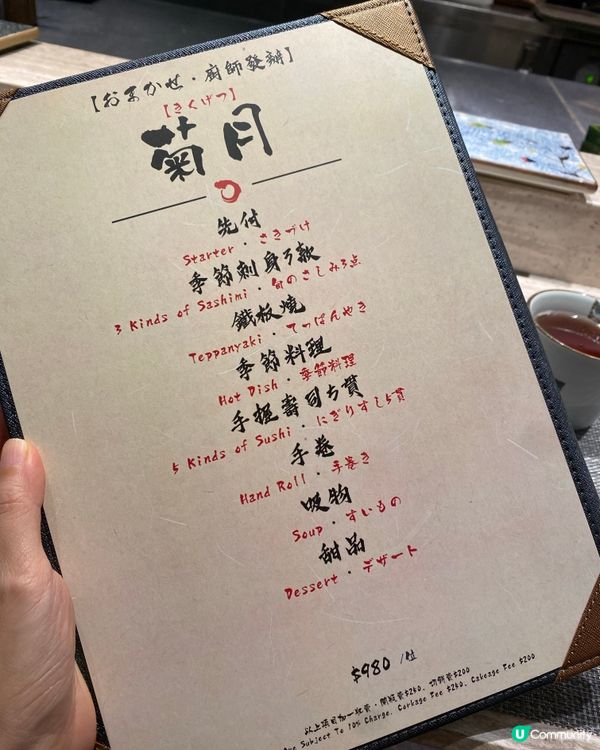 【おまかせ・廚師發辦】
【きくげつ】
菊月
先付
Starter・さきづけ
季節刺身3款
3 Kinds of Sashimi・旬のさしみ3点
鐵板燒
Teppanyaki・てっぱんやき
季節料理
Hot Dish・季節料理
手握壽司5貫
5 Kinds of Sushi・にぎりすし5貫
手卷
Hand Roll・手巻き
吸物
Soup・すいもの
甜品
Dessert・デザート
$980 /位
以上項目加一服務費・開瓶費$240、切餅費$200
Subject To 10% Charge. Corkage Fee $240. Cakeage Fee $200
U Community